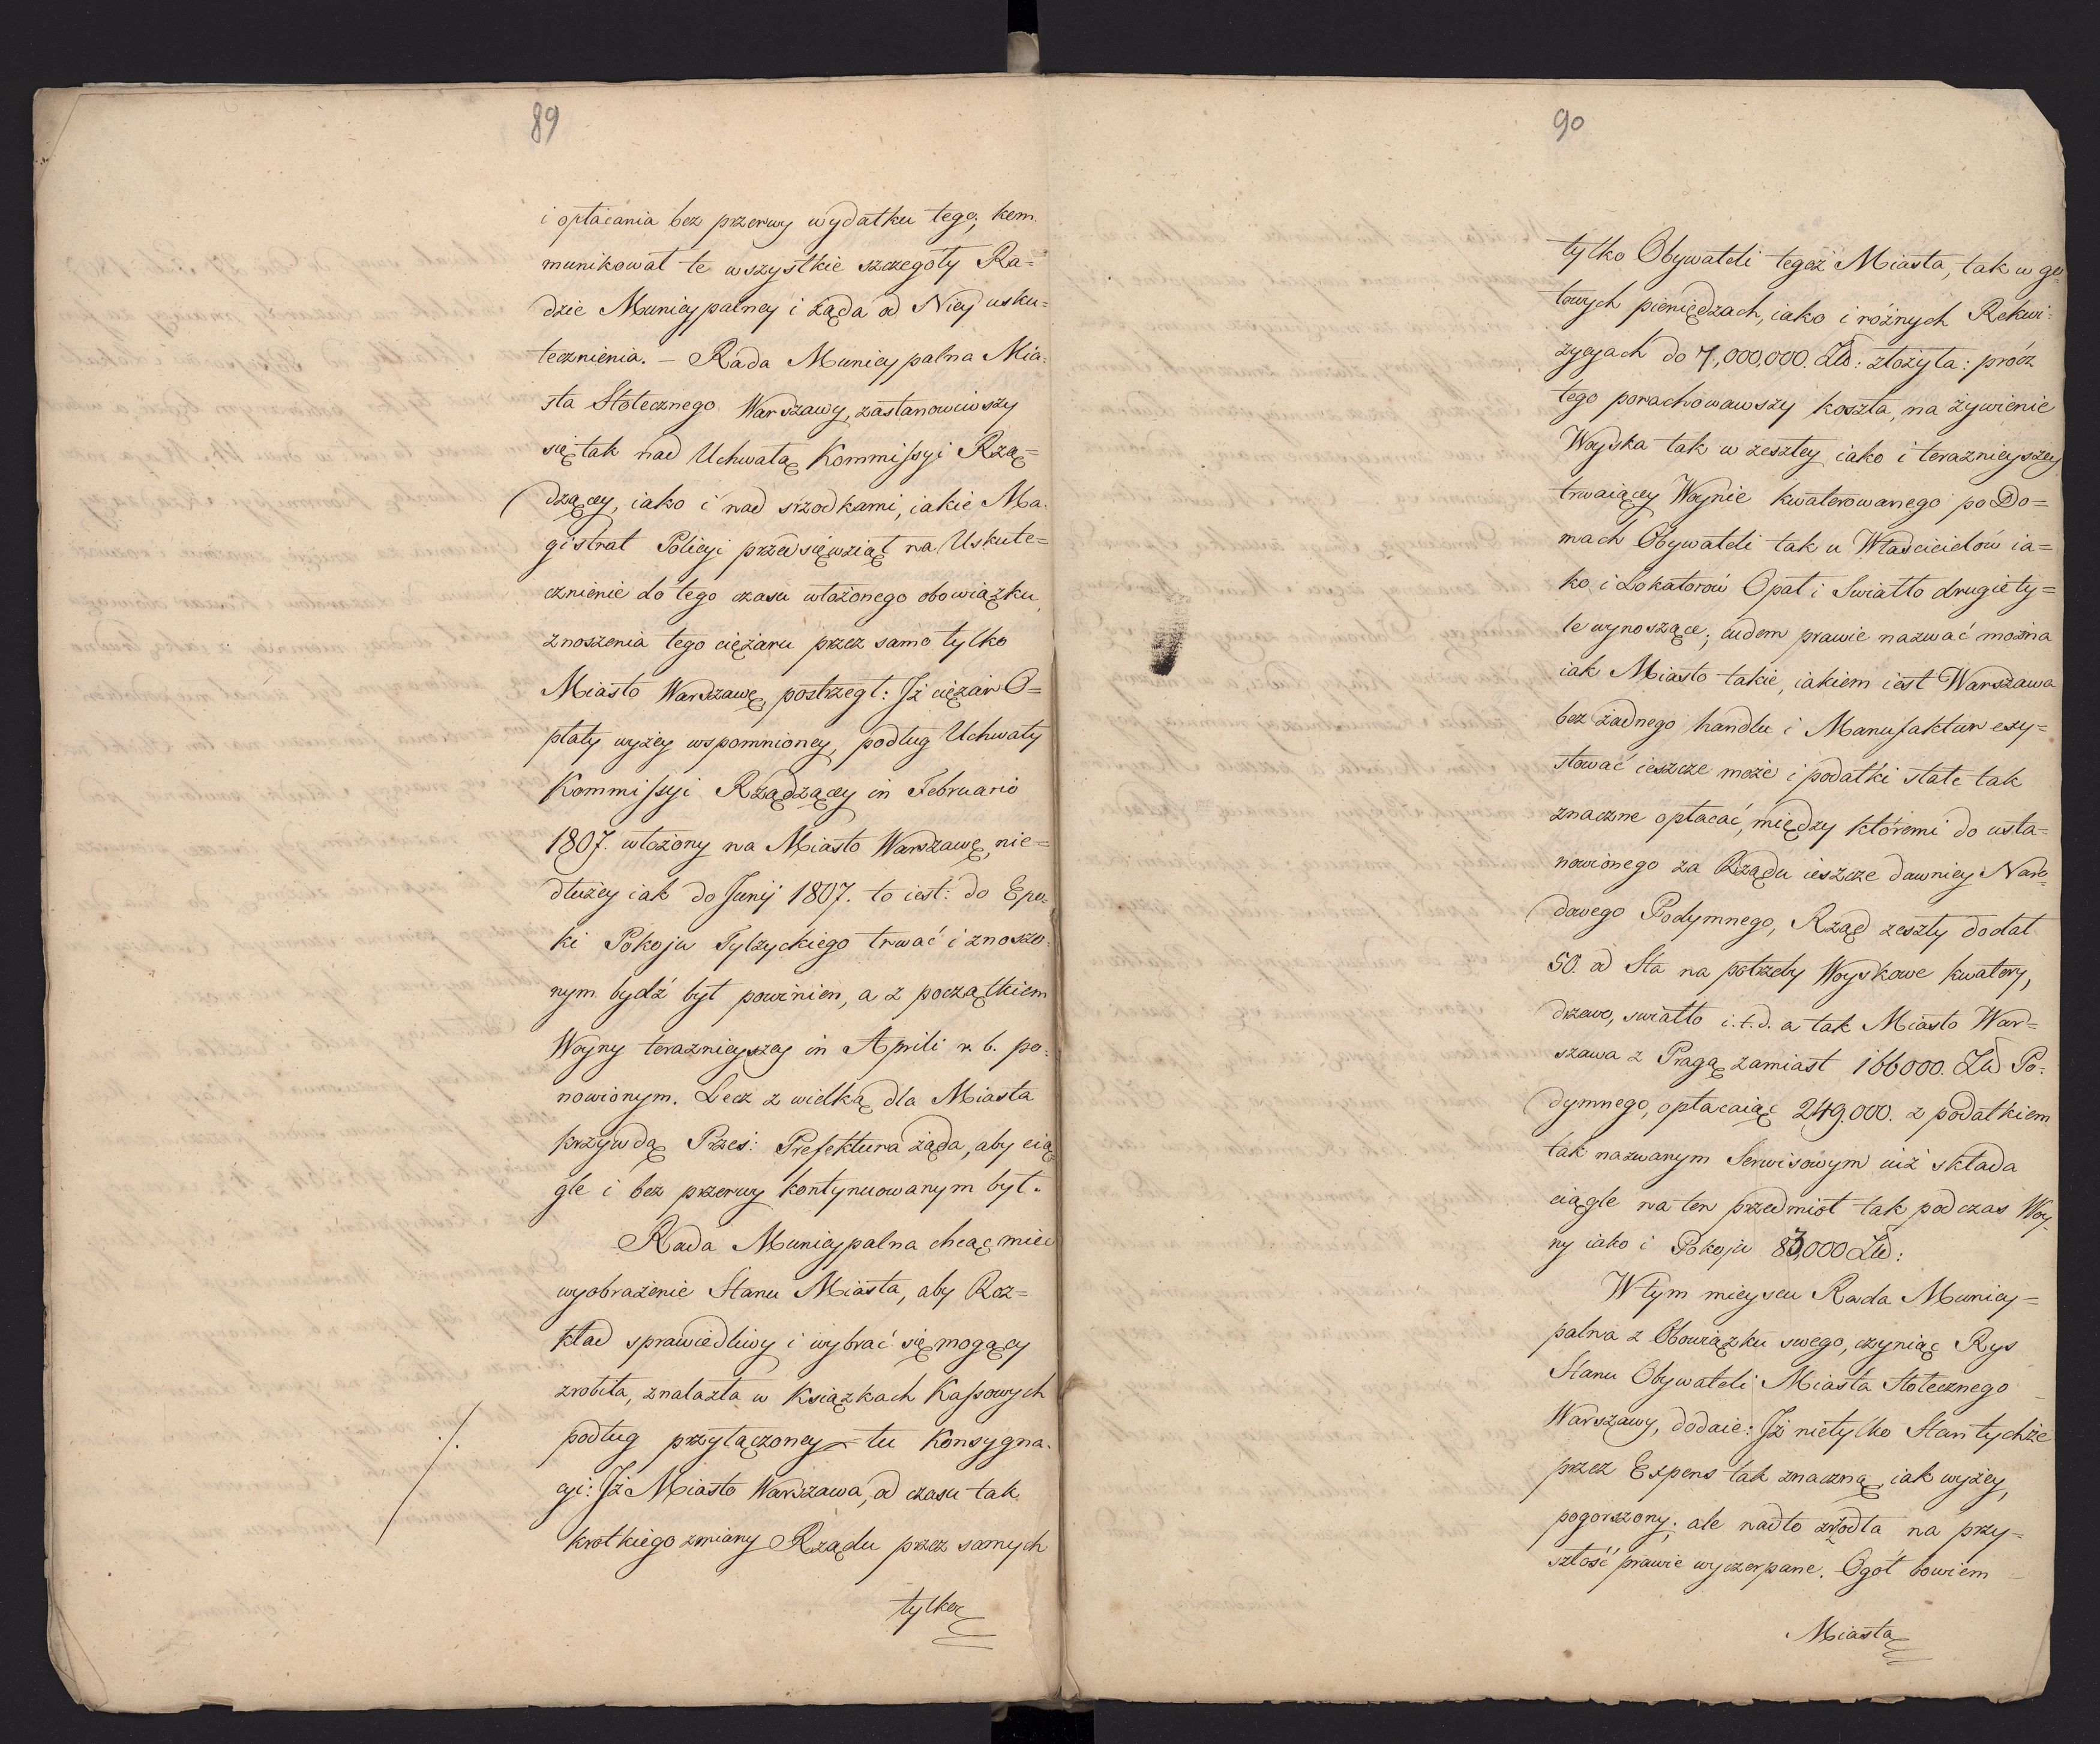 89
i opłacania bez przerwy wydatku tego, kom
munikował te wszystkie szczegoły Ra=
dzie Municypalney i żąda od Niey usku=
tecznienia. – Rada Municypalna Mia=
sta Stołecznego Warszawy, zastanowiwszy
się tak nad Uchwałą Kommissyi Rzą=
dzącey, iako i nad srzodkami, iakie Ma=
gistrat Policyi przedsięwziął na Uskute=
cznienie do tego czasu włożonego obowiązku
znoszenia tego ciężaru przez samo tylko
Miasto Warszawę, postrzegł: Jż ciężar O=
płaty wyżey wspomnioney, podług Uchwały
Kommissyi Rządzącey in Februario
1807. włożony na Miasto Warszawę, nie=
dłużey iak do Junij 1807. to iest: do Epo=
ki Pokoju Tylżyckiego trwać i znoszo=
nym bydź był powinien, a z początkiem
Woyny teraznieyszey in Aprili r. b. po=
nowionym. Lecz z wielką dla Miasta
krzywdą Prześ: Prefektura żąda, aby cią
gle i bez przerwy kontynuowanym był.
Rada Municypalna chcąc mieć
wyobrażenie Stanu Miasta, aby Roz=
kład sprawiedliwy i wybrać się mogący
zrobiła, znalazła w Ksiązkach Kassowych
podług przyłączoney tu Konsygna=
cyi: Jż Miasto Warszawa, od czasu tak
krotkiego zmiany Rządu przez samych
tylko
90
tylko Obywateli tegoż Miasta, tak w go=
towych pieniędzach, iako i różnych Rekwi=
zycyach do 7,000,000. Złł: złożyła: prócz
tego porachowawszy koszta, na żywienie
Woyska tak w zeszłey iako i teraznieyszey
trwaiącey Woynie kwaterowanego po Do=
mach Obywateli tak u Właścicielów ia=
ko i Lokatorów Opał i Swiatło drugie ty=
le wynoszące; cudem prawie nazwać można
iak Miasto takie, iakiem iest Warszawa
bez żadnego handlu i Manufaktur exy=
stować ieszcze może i podatki stałe tak
znaczne opłacać, między któremi do usta=
nowionego za Rządu ieszcze dawniey Naro=
dowego Podymnego, Rząd zeszły dodał
50. od Sta na potrzeby Woyskowe kwatery,
drzewo, swiatło i.t.d. a tak Miasto War=
szawa z Pragą zamiast 166000. Złł Po=
dymnego, opłacaiąc 249.000. z podatkiem
tak nazwanym Serwisowym iuż składa
ciągle na ten przedmiot tak podczas Woy=
ny iako i Pokoju 83,000 Złł:
W tym mieyscu Rada Municy=
palna z Obowiązku swego, czyniąc Rys
Stanu Obywateli Miasta Stołecznego
Warszawy, dodaie: Jż nietylko Stan tychże
przez Expens tak znaczną, iak wyżey,
pogorszony; ale nadto zrodła na przy=
szłość prawie wyczerpane. Ogół bowiem
Miasta